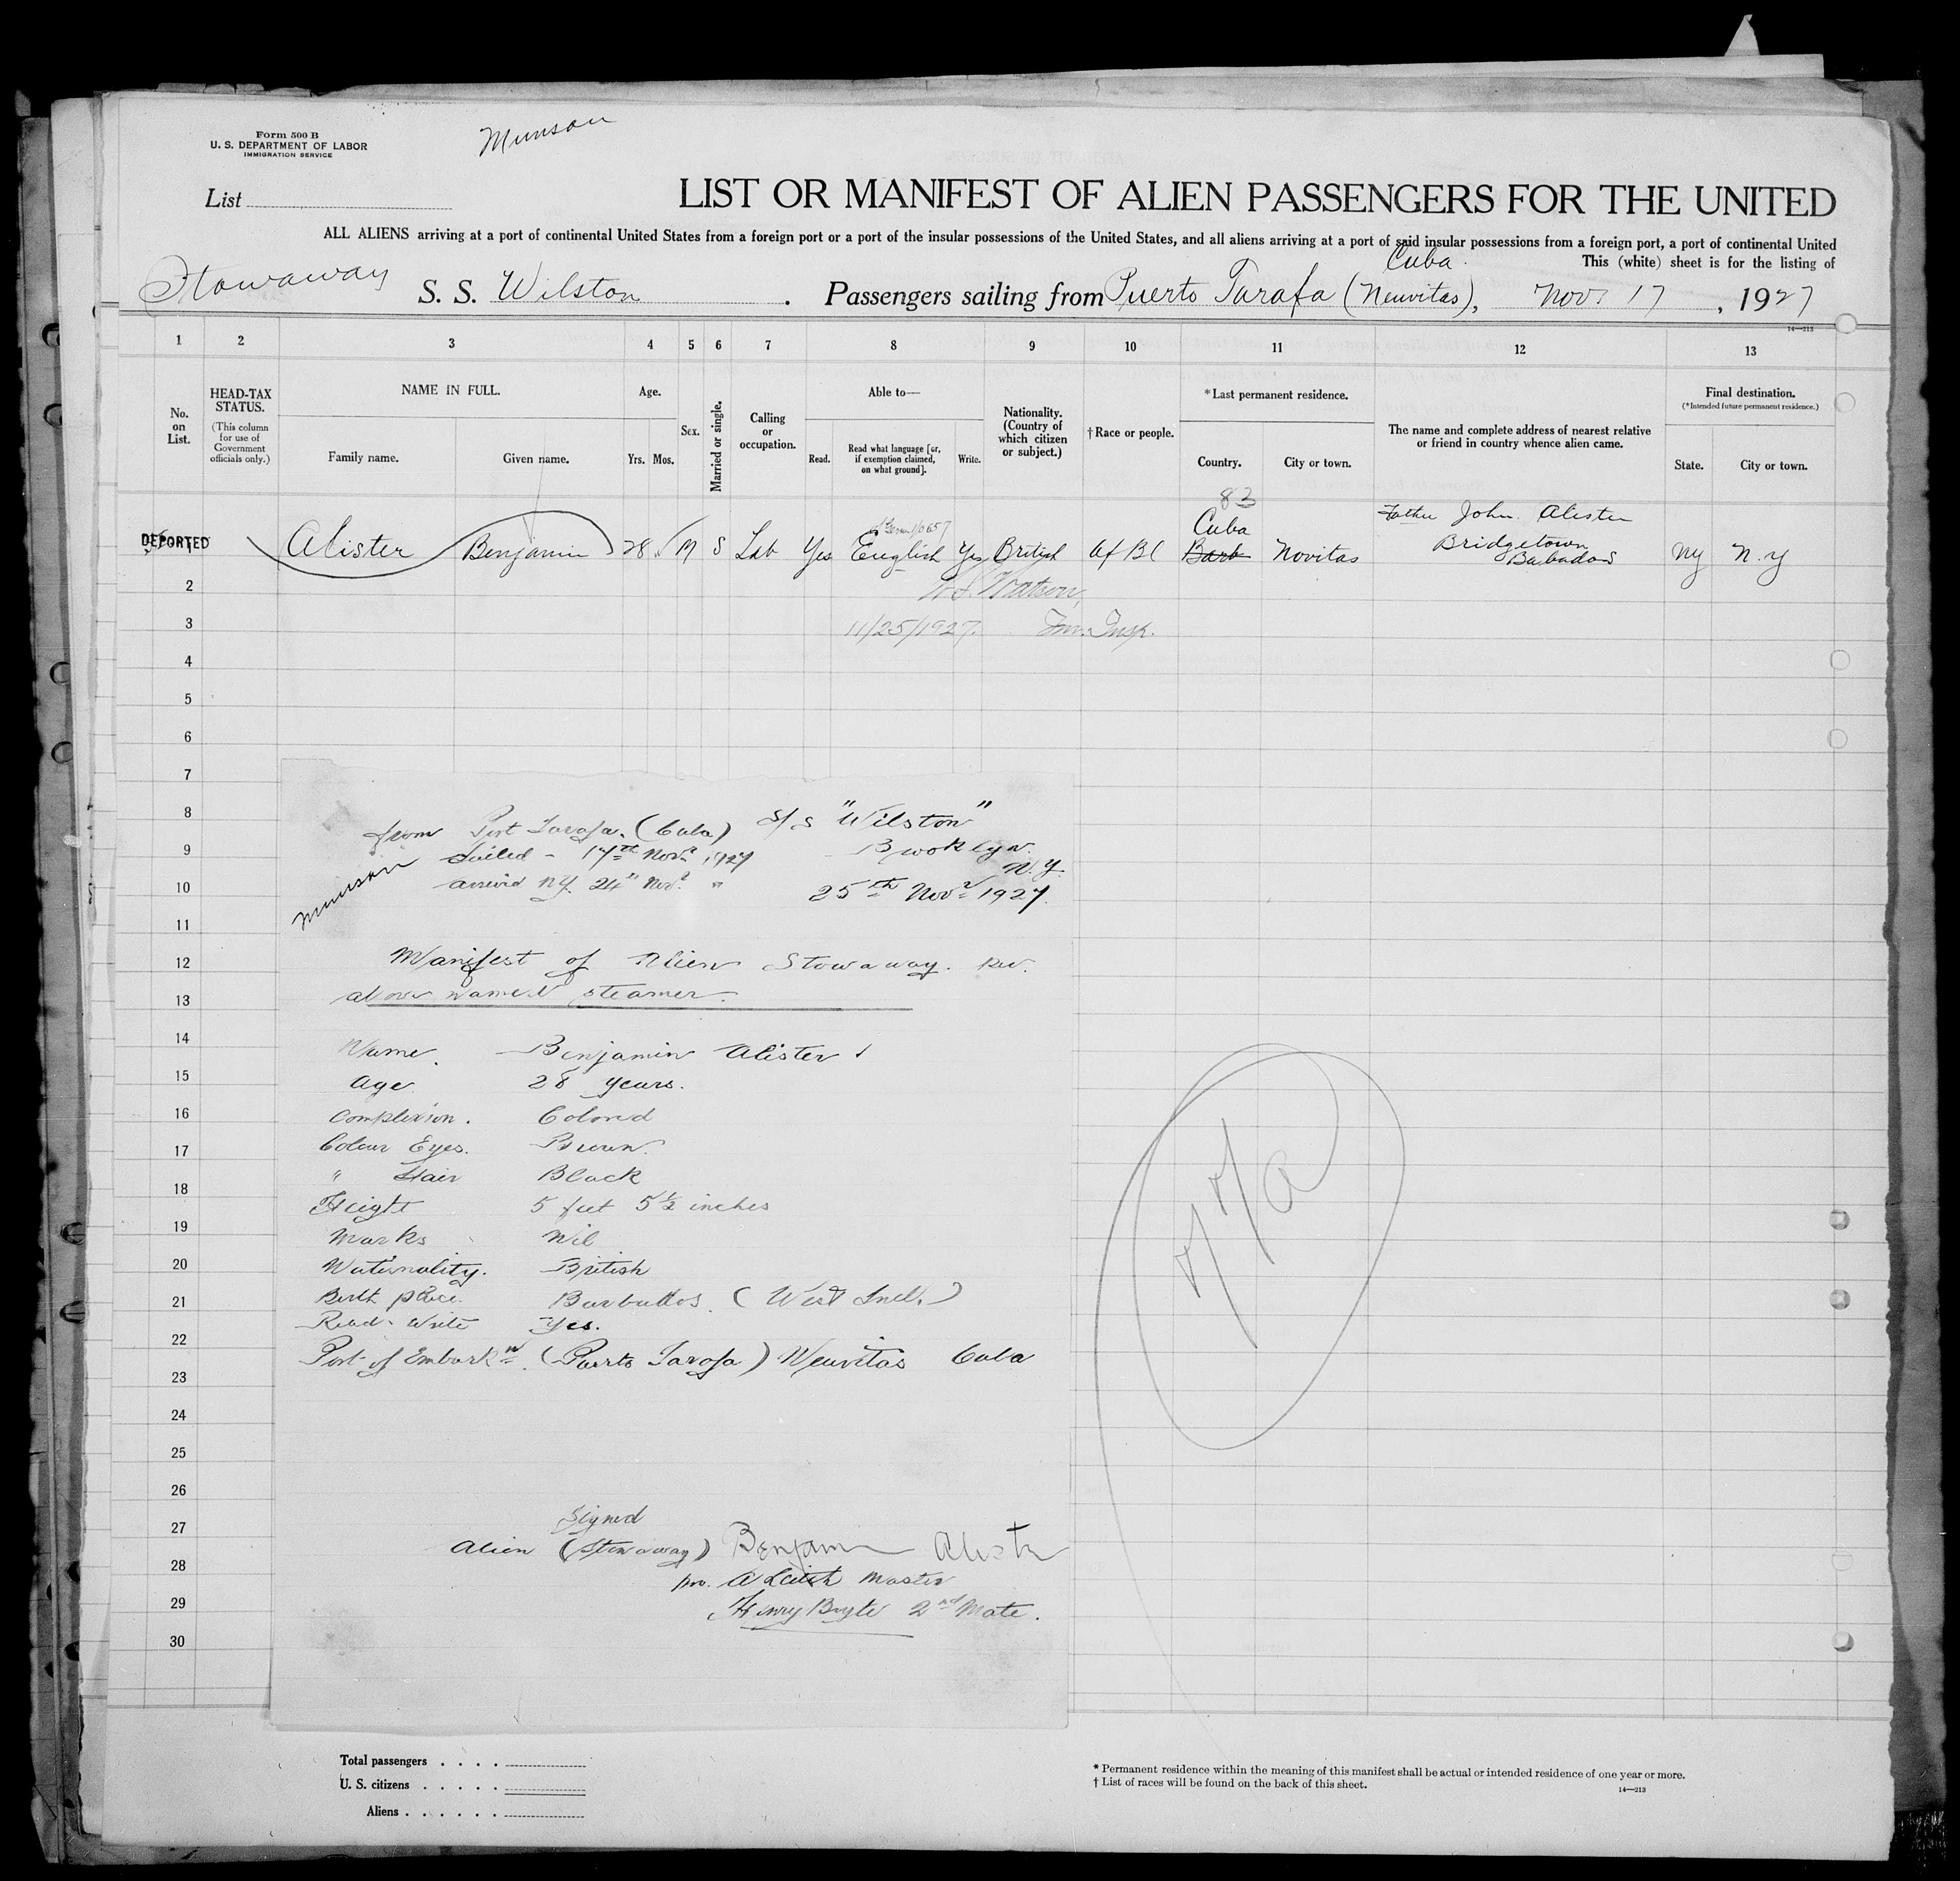 Form 500 B
U. S. DEPARTMENT OF LABOR
IMMIGRATION SERVICE
Munson
List
LIST OR MANIFEST OF ALIEN PASSENGERS FOR THE UNITED
ALL ALIENS arriving at a port of continental United States from a foreign port or a port of the insular possessions of the United States, and all aliens arriving at a port of said insular possessions from a foreign port, a port of continental United
This (white) sheet is for the listing of
Stowaway S. S. Wilston . Passengers sailing from Puerto Tarafa (Neuvitas), Cuba. Nov. 17, 1927
14—213
1 2 3 4 5 6 7 8 9 10 11 12 13
No. on List.
HEAD-TAX STATUS.
(This column for use of Government officials only.)
NAME IN FULL.
Family name. Given name.
Age.
Yrs. Mos.
Sex.
Married or single.
Calling or occupation.
Able to—
Read. Read what language [or, if exemption claimed, on what ground]. Write.
Nationality. (Country of which citizen or subject.)
†Race or people.
*Last permanent residence.
Country. City or town.
The name and complete address of nearest relative or friend in country whence alien came.
Final destination.
(*Intended future permanent residence.)
State. City or town.
83
Cuba
Father John Alister
DEPORTED Alister Benjamin 28 M S Lab Yes English Yes British Af Bl Barb Novitas Bridgetown Babados NY N.Y
2
W. J. Watson,
3
11/25/1927. Imm. Insp.
4
5
6
7
8
9
10
11
12
13
14
15
16
17
18
19
20
21
22
23
24
25
26
27
28
29
30
from Port Tarafa. (Cuba) S/S "Wilston"
Sailed - 17th Nov. 1927 Brooklyn.
N.Y.
Munson
arrived NY. 24" Nov. " 25th Nov. 1927.
Manifest of Alien Stowaway. per.
above named steamer.
Name. Benjamin Alister
Age 28 years.
Complexion. Colored
Colour Eyes. Brown.
" Hair Black
Height 5 feet 5½ inches
Marks Nil
Nationality. British
Birth place. Barbados. (West Ind.)
Read - Write Yes.
Port of Embarkn. (Puerto Tarafa) Neuvitas Cuba
Signed
Alien (Stowaway) Benjamin Alister
pro. A Leitch Master
Henry Boyte 2nd Mate.
Total passengers
U. S. citizens
Aliens
* Permanent residence within the meaning of this manifest shall be actual or intended residence of one year or more.
† List of races will be found on the back of this sheet.
14—213